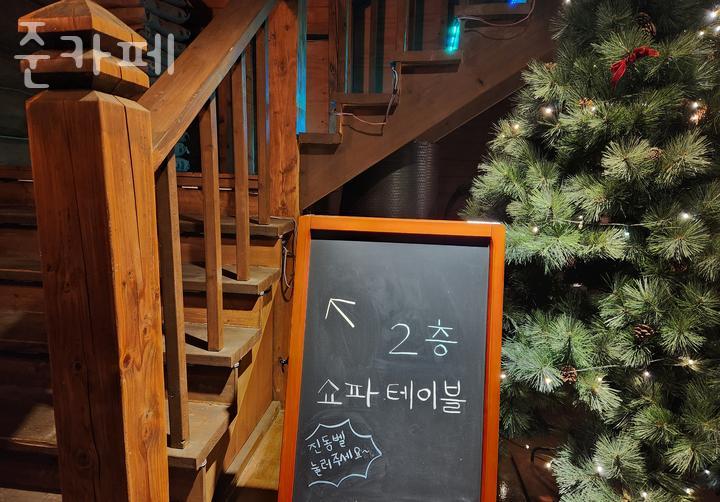 준카페
2층
쇼파 테이블
진동벨
눌러주세요~